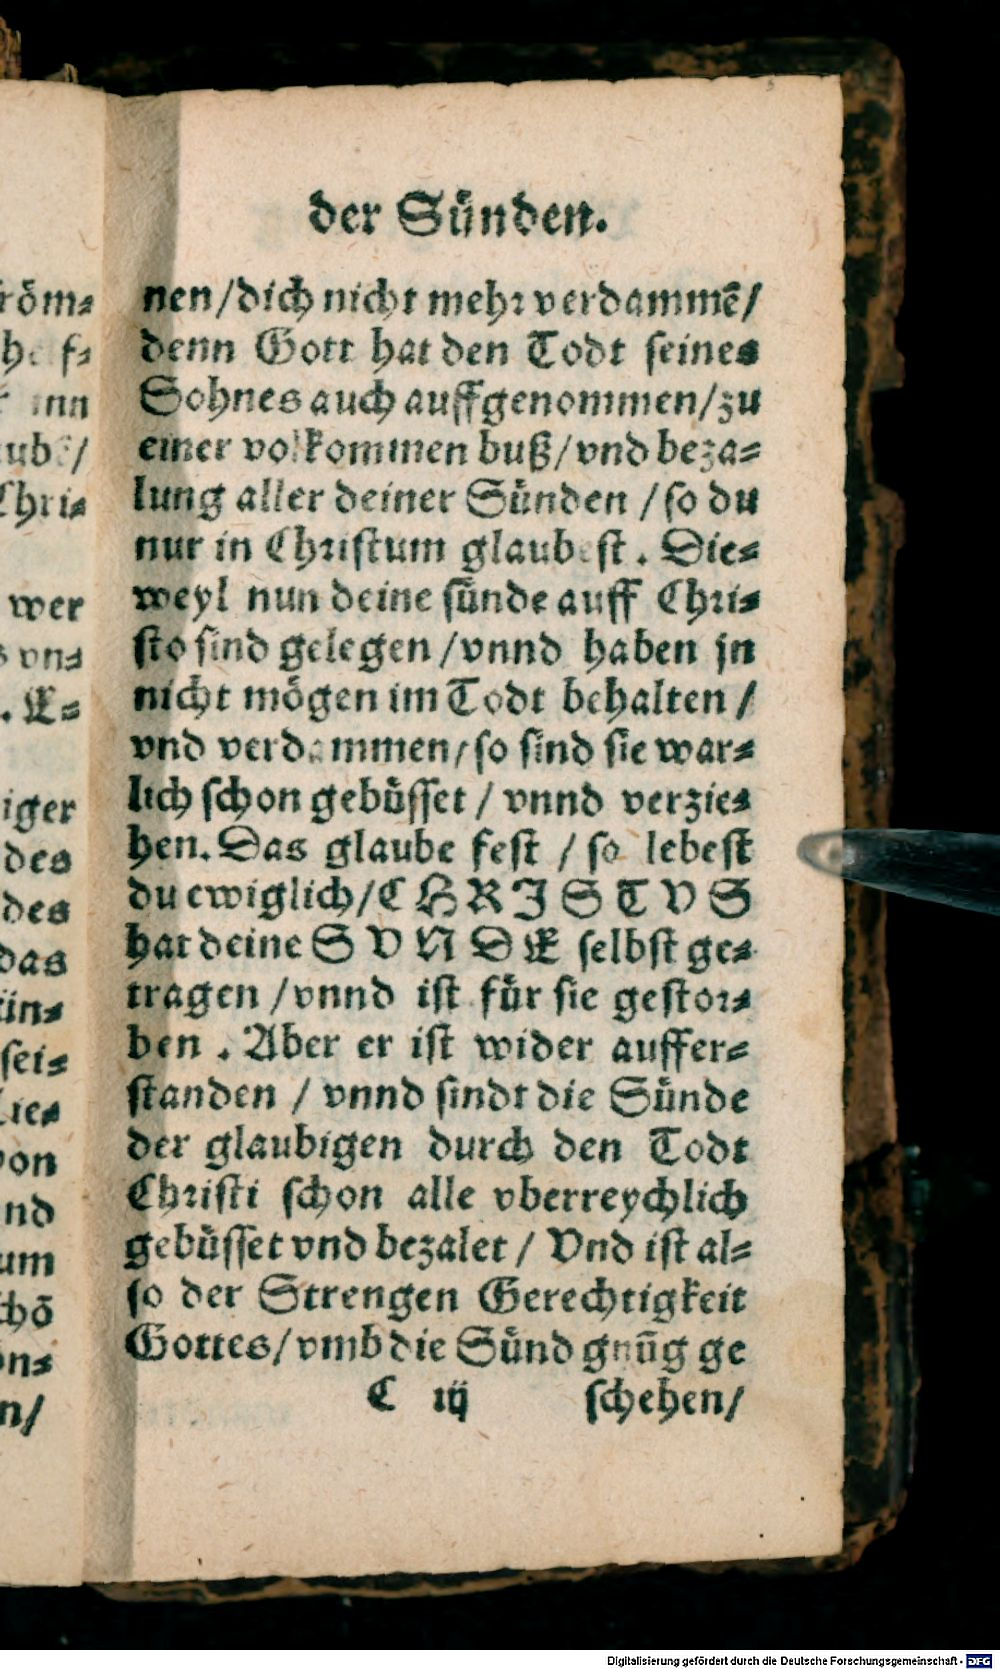 der Sünden.
nen/dich nicht mehr verdammē/
denn Gott hat den Todt seines
Sohnes auch auffgenommen/zu
einer volkommen buß/vnd beza⸗
lung aller deiner Sünden /so du
nur in Christum glaubest. Die⸗
weyl nun deine sünde auff Chri⸗
sto sind gelegen /vnnd haben jn
nicht mögen im Todt behalten /
vnd verdammen/so sind sie war⸗
lich schon gebüsset / vnnd verzie⸗
hen. Das glaube fest / so lebest
du ewiglich/C H R I S T V S
hat deine S V N D E selbst ge⸗
tragen /vnnd ist für sie gestor⸗
ben . Aber er ist wider auffer⸗
standen / vnnd sindt die Sünde
der glaubigen durch den Todt
Christi schon alle vberreychlich
gebüsset vnd bezalet / Vnd ist al⸗
so der Strengen Gerechtigkeit
Gottes/vmb die Sünd gnūg ge
C iij schehen/
röm⸗
inn
Chri⸗
wer
vn⸗
. E⸗
iger
des
des
das
sei⸗
von
nd
um
n/
Digitalisierung gefördert durch die Deutsche Forschungsgemeinschaft - DFG